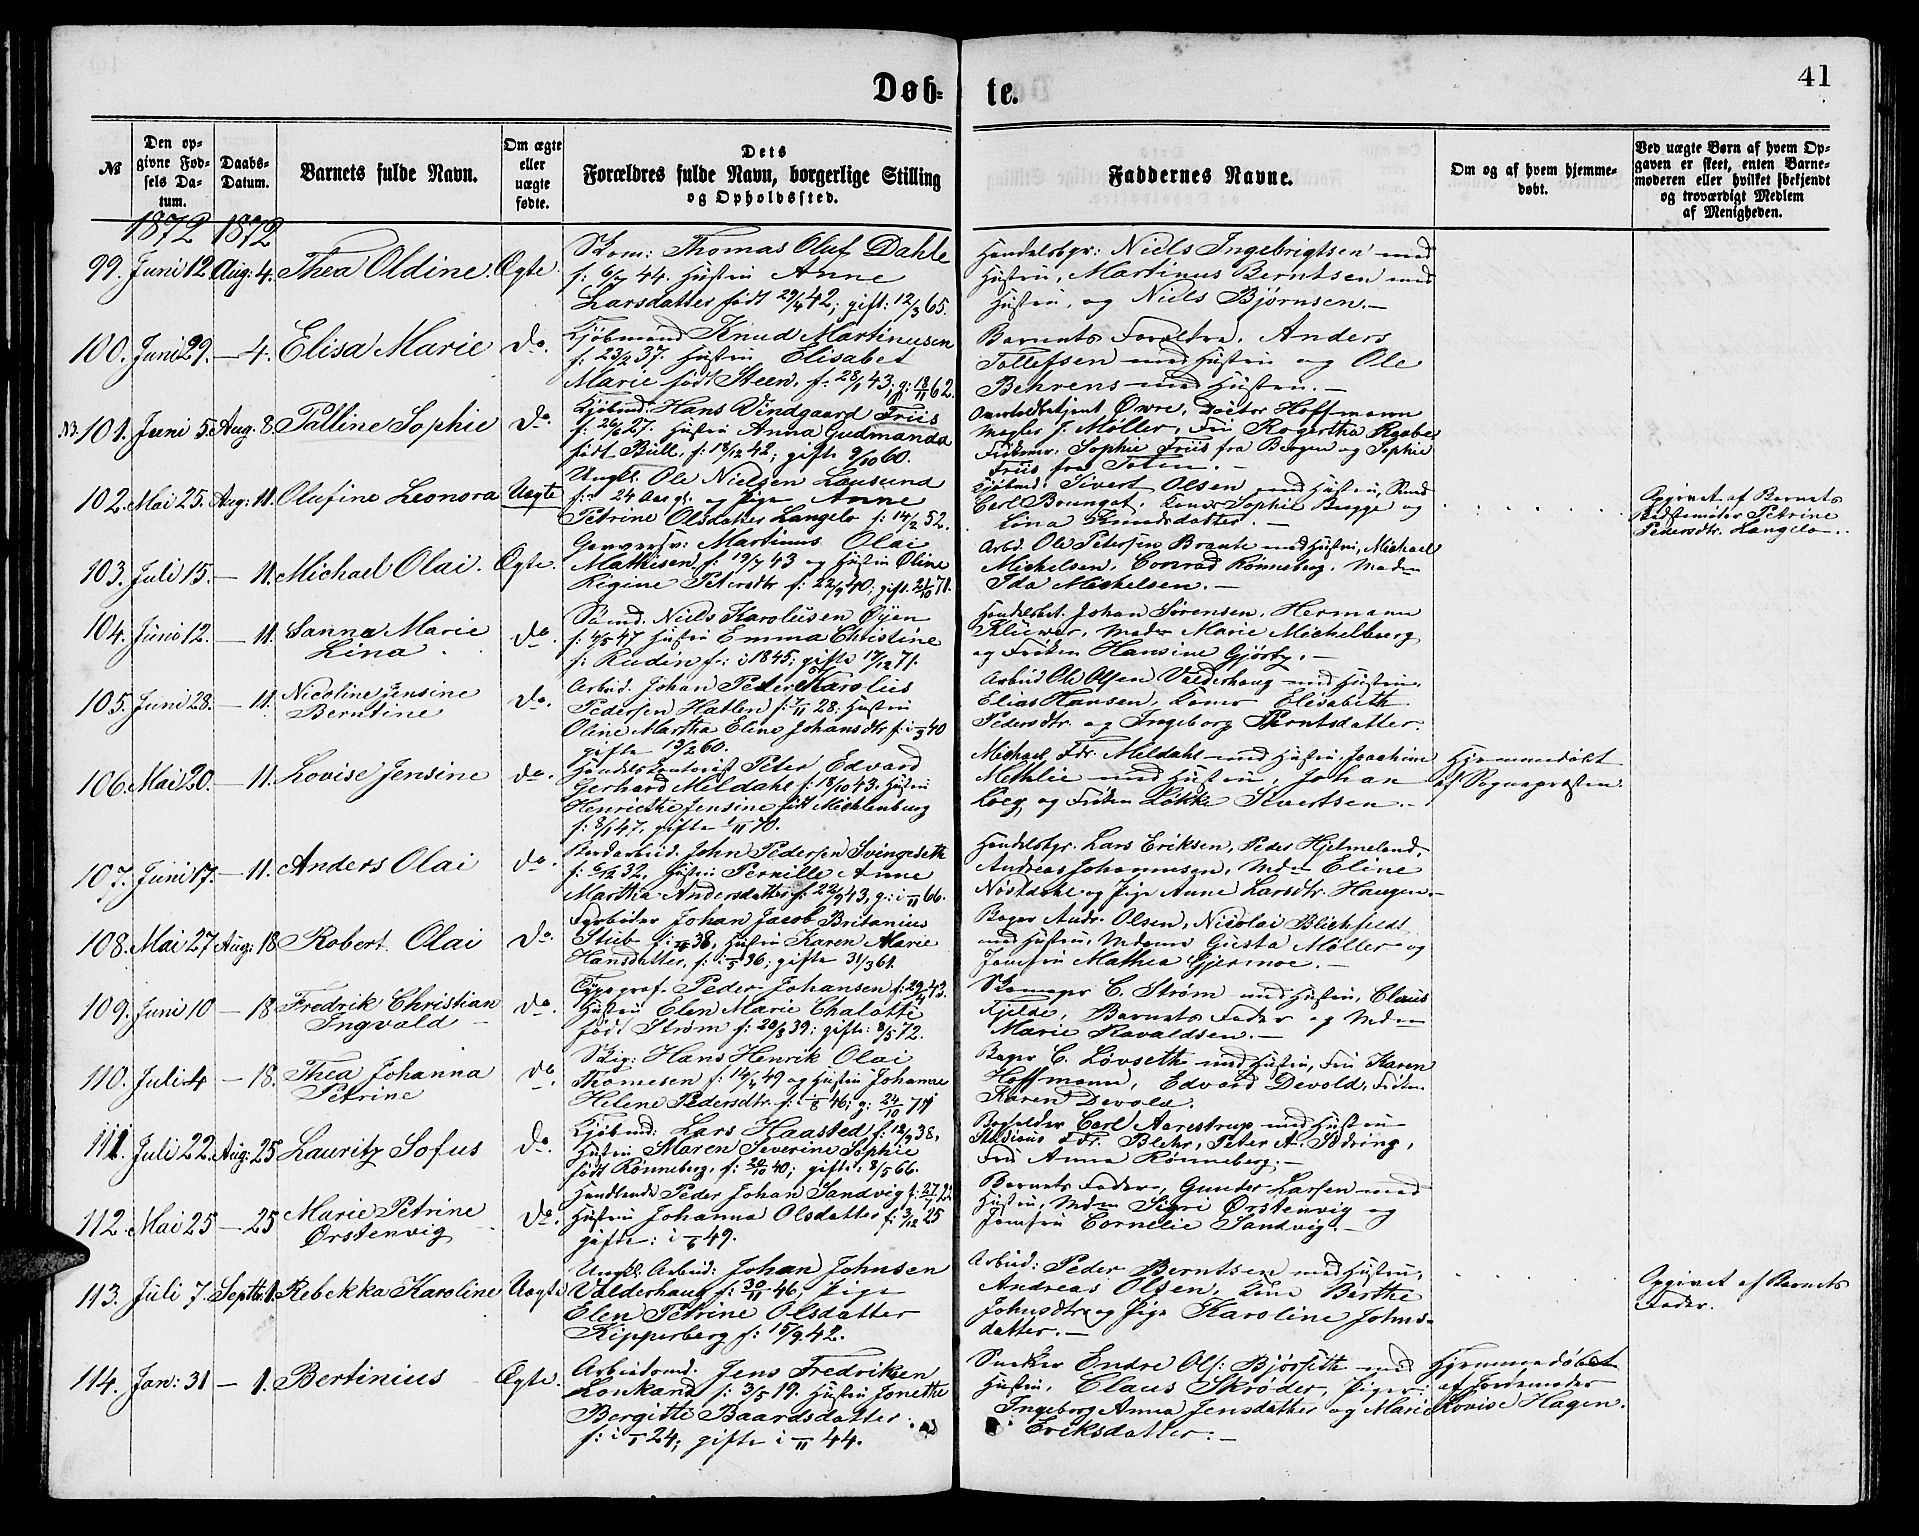 Døb-
te.
41
№
Den op-
givne Fød-
sels Da-
tum.
Daabs-
Datum.
Barnets fulde Navn.
Om ægte
eller
uægte
fødte.
Dets
Forældres fulde Navn, borgerlige Stilling
og Opholdssted.
Faddernes Navne.
Om og af hvem hjemme-
døbt.
Ved uægte Børn af hvem Op-
gaven er skeet, enten Barne-
moderen eller hvilket bekjendt
og troværdigt Medlem
af Menigheden.
1872 1872
99. Juni 12. Aug: 4. Thea Oldine. Ægte.
Skom: Thomas Oluf Dahle
f. 6/7 44. Hustru Anne
Larsdatter født 29/4 42; gift: 12/3 65.
Handelsbgr: Niels Ingebrigtsen med
Hustru, Martinus Berntsen med
Hustru, og Niels Bjørnsen.—
100. Juni 29. — 4. Elisa Marie do.
Kjøbmand Knud Martinusen
f. 23/2 37. Hustru Elisabet
Marie født Steen, f. 28/1 43, g: 18/11 62.
Barnets Forældre, Anders
Tollefsen med Hustru og Ole
Behrens med Hustru.—
N3. 101. Juni 5. Aug: 8. Palline Sophie do.
Kjøbmd: Hans Vindgaard Friis
f: 26/6 27. Hustru Anna Gudmanda
født Bull, f: 18/12 42; gifte 9/10 60.
Overtoldbetjent Øwre, Doctor Hoffmann
Megler J. Møller, Fru Rogertha Raabe
Frøkner, Sophie Friis fra Bergen og Sophie
Friis fra Toten.—
102. Mai 25. Aug: 11. Olufine Leonora Uægte
Ungkl. Ole Nielsen Lausund
f: 24 Aar gl. og Pige Anne
Petrine Olsdatter Langelo f: 14/2 52.
Kjøbmd: Sivert Olsen med Hustru,
Carl Koner Sophie Bregge og
Lina Knudsdatter.—
Opgivet af Barnets
Bedstemoder Petrine
Pedersdtr. Langelo.
103. Juli 15. — 11. Michael Olai. Ægte.
Garversv: Martinus Olai
Mathisen f: 19/7 43 og Hustru Oline
Regine Petersdtr f: 22/9 40; gift: 21/10 71.
Arbd. Ole Petersen Brante med Hustru, Michael
Michelsen, Conrad Rønneberg, Madm
Ida Michelsen.—
104. Juni 12. — 11. Sanna Marie
Lina do.
Sømd. Niels Karolusen Øyen
f: 4/5 47 Hustru Emma Christine
f: Rudin f: i 1845; gifte 17/12 71.
Handelsbet. Johan Sørensen, Hermann
Klüwer, Madm Marie Michelburg
og Frøken Hansine Gjørtz.—
105. Juni 28. — 11. Nicoline Jensine
Berntine do.
Arbeid. Johan Peter Karolius
Pedersen Hatlen f: 7/11 28; Hustru
Oline Martha Eline Johansdtr f: i 40
gifte 19/2 60.
Arbeid Ole Olsen Valderhaug med Hustru,
Elias Hansen, Koner Elisabeth
Pedersdtr og Ingeborg Berntsdatter.
106. Mai 20. — 11. Lovise Jensine do.
Handelskontorist Peter Edvard
Gerhard Meldahl f: 18/10 43. Hustru
Henriette Jensine født Michlenburg
f: 8/1 47, gifte 1/11 70.
Michael Fdr. Meldahl med Hustru, Joachim
Methlie med Hustru, Johan
Koeg og Frøken Løkke Sivertsen.—
Hjemmedøbt
af Sognepræsten.
107. Juni 17. — 11. Anders Olai do.
Bordarbeid. John Pedersen Svingeseth
f: 6/12 32, Hustru Pernille Anne
Marthea Andersdatter f: 22/9 43, g: i 11 66.
Handelsbgr. Lars Eriksen, Peder Hjelmeland,
Andreas Johannusen, Mdm Eline
Nøstdahl og Pige Anne Larsdtr. Haugen.—
108. Mai 27 Aug: 18 Robert Olai do.
Farbøder Johan Jacob Britanius
Stub f: 38, Hustru Karen Marie
Hansdatter, f: i 36; gifte 31/3 61.
Bager Andr. Olsen, Nicolai Blichfeldt
med Hustru, Mdme Gusta Møller og
Jomfru Mathea Gjermoe.—
109. Juni 10 — 18 Fredrik Christian
Ingvald — do.
Typograf Peder Johansen f: 29/4 43.
Hustru Elen Marie Chalotte
født Strøm f: 20/8 39; gifte: 8/5 72.
Skomager C. Strøm med Hustru, Claus
Fjelde, Barnets Fader og Mdm
Marie Ravaldsen.—
110. Juli 4 — 18. Thea Johanna
Petrine do.
Skig: Hans Henrik Olai
Thomesen f: 14/4 49 og Hustru Johanne
Helene Pedersdtr. f: 46; g: 24/10 71
Bager C. Løvseth med Hustru, Fru Karen
Hoffmann, Edvard Devold, Frøken
Karen Devold.
111. Juli 22. Aug: 25 Lauritz Sofus do.
Kjøbmd: Lars Haasted f: 12/9 38,
Hustru Maren Severine Sophie
født Rønneberg, f: 20/10 40; gifte: 8/5 66.
Bogholder Carl Aarestrup med Hustru
Stadious Fdr. Blehr, Peter A. Sødring,
Fru Anna Rønneberg.—
112. Mai 25 — 25 Marie Petrine
Ørstenvig do.
Handlende Peder Johan Sandvig f: 27/7 22
Hustru Johanna Olsdatter f: 3/12 25
gifte: i 6 49.
Barnets Fader, Gunder Larsen med
Hustru, Mdm Sigri Ørstenvig og
Jomfru Cornelie Sandvig.—
113. Juli 7. Septbr. 1. Rebekka Karoline Uægte
Ungkl. Arbeid: Johan Johnsen
Valderhaug f: 30/11 46, Pige
Elen Petrine Olsdatter
Kipperberg f: 15/9 42.
Arbeid: Peder Berntsen med Hustru,
Andreas Olsen, Kone Berthe
Johnsdtr. og Pige Karoline Johns-
datter.—
Opgivet af Barnets
Fader.
114. Jan: 31 — 1. Bertinius Ægte.
Arbeidsmd: Jens Fredriksen
Loukand f: 3/5 19. Hustru Jonette
Bergitte Baardsdatter.
f: i 24; gifte i 11 44.
Snedker Endre Ols: Bjørseth med
Hustru, Claus Skrøder, Piger:
Ingeborg Anna Jensdatter og Marie
Eriksdatter.—
Hjemmedøbt
af Jordemoder
Lovise Hagen.